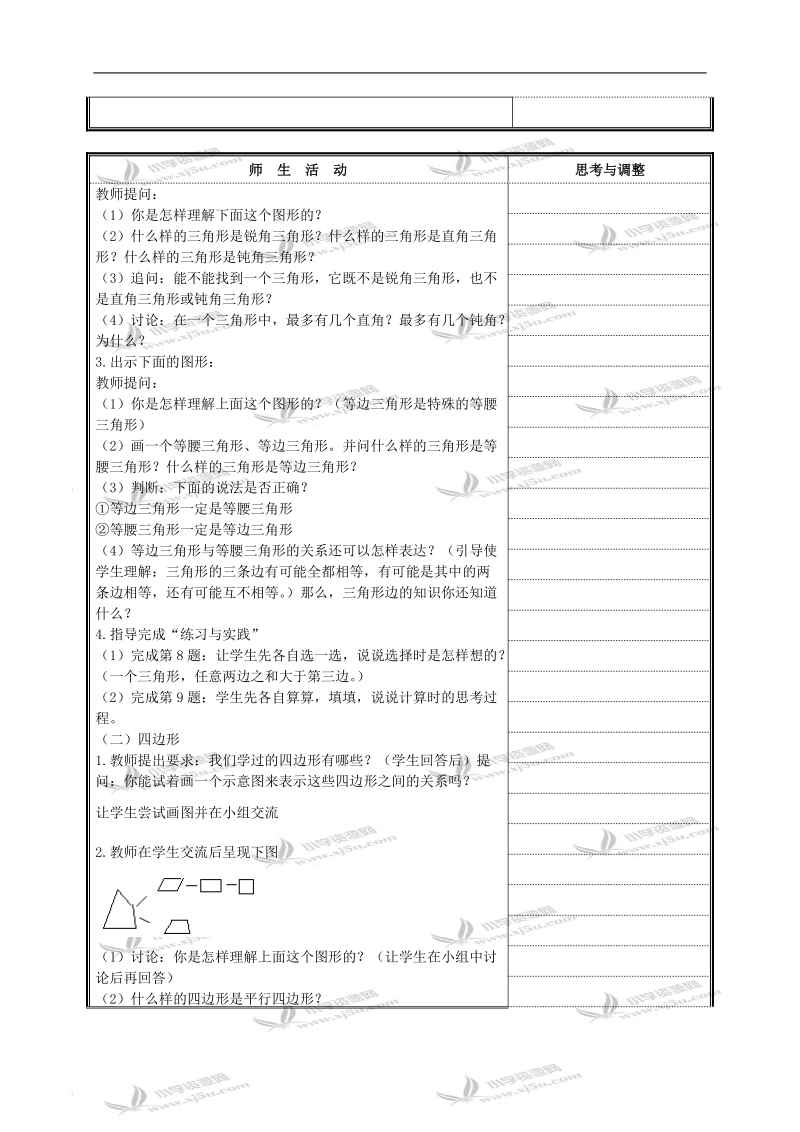 师 生 活 动
思考与调整
教师提问：
（1）你是怎样理解下面这个图形的？
（2）什么样的三角形是锐角三角形？什么样的三角形是直角三角
形？什么样的三角形是钝角三角形？
（3）追问：能不能找到一个三角形，它既不是锐角三角形，也不
是直角三角形或钝角三角形？
（4）讨论：在一个三角形中，最多有几个直角？最多有几个钝角？
为什么？
3.出示下面的图形：
教师提问：
（1）你是怎样理解上面这个图形的？（等边三角形是特殊的等腰
三角形）
（2）画一个等腰三角形、等边三角形。并问什么样的三角形是等
腰三角形？什么样的三角形是等边三角形？
（3）判断：下面的说法是否正确？
①等边三角形一定是等腰三角形
②等腰三角形一定是等边三角形
（4）等边三角形与等腰三角形的关系还可以怎样表达？（引导使
学生理解：三角形的三条边有可能全都相等，有可能是其中的两
条边相等，还有可能互不相等。）那么，三角形边的知识你还知道
什么？
4.指导完成“练习与实践”
（1）完成第 8 题：让学生先各自选一选，说说选择时是怎样想的？
（一个三角形，任意两边之和大于第三边。）
（2）完成第 9 题：学生先各自算算，填填，说说计算时的思考过
程。
（二）四边形
1.教师提出要求：我们学过的四边形有哪些？（学生回答后）提
问：你能试着画一个示意图来表示这些四边形之间的关系吗？
让学生尝试画图并在小组交流
2.教师在学生交流后呈现下图
（1）讨论：你是怎样理解上面这个图形的？（让学生在小组中讨
论后再回答）
（2）什么样的四边形是平行四边形？
小学资源网
www.xj5u.com